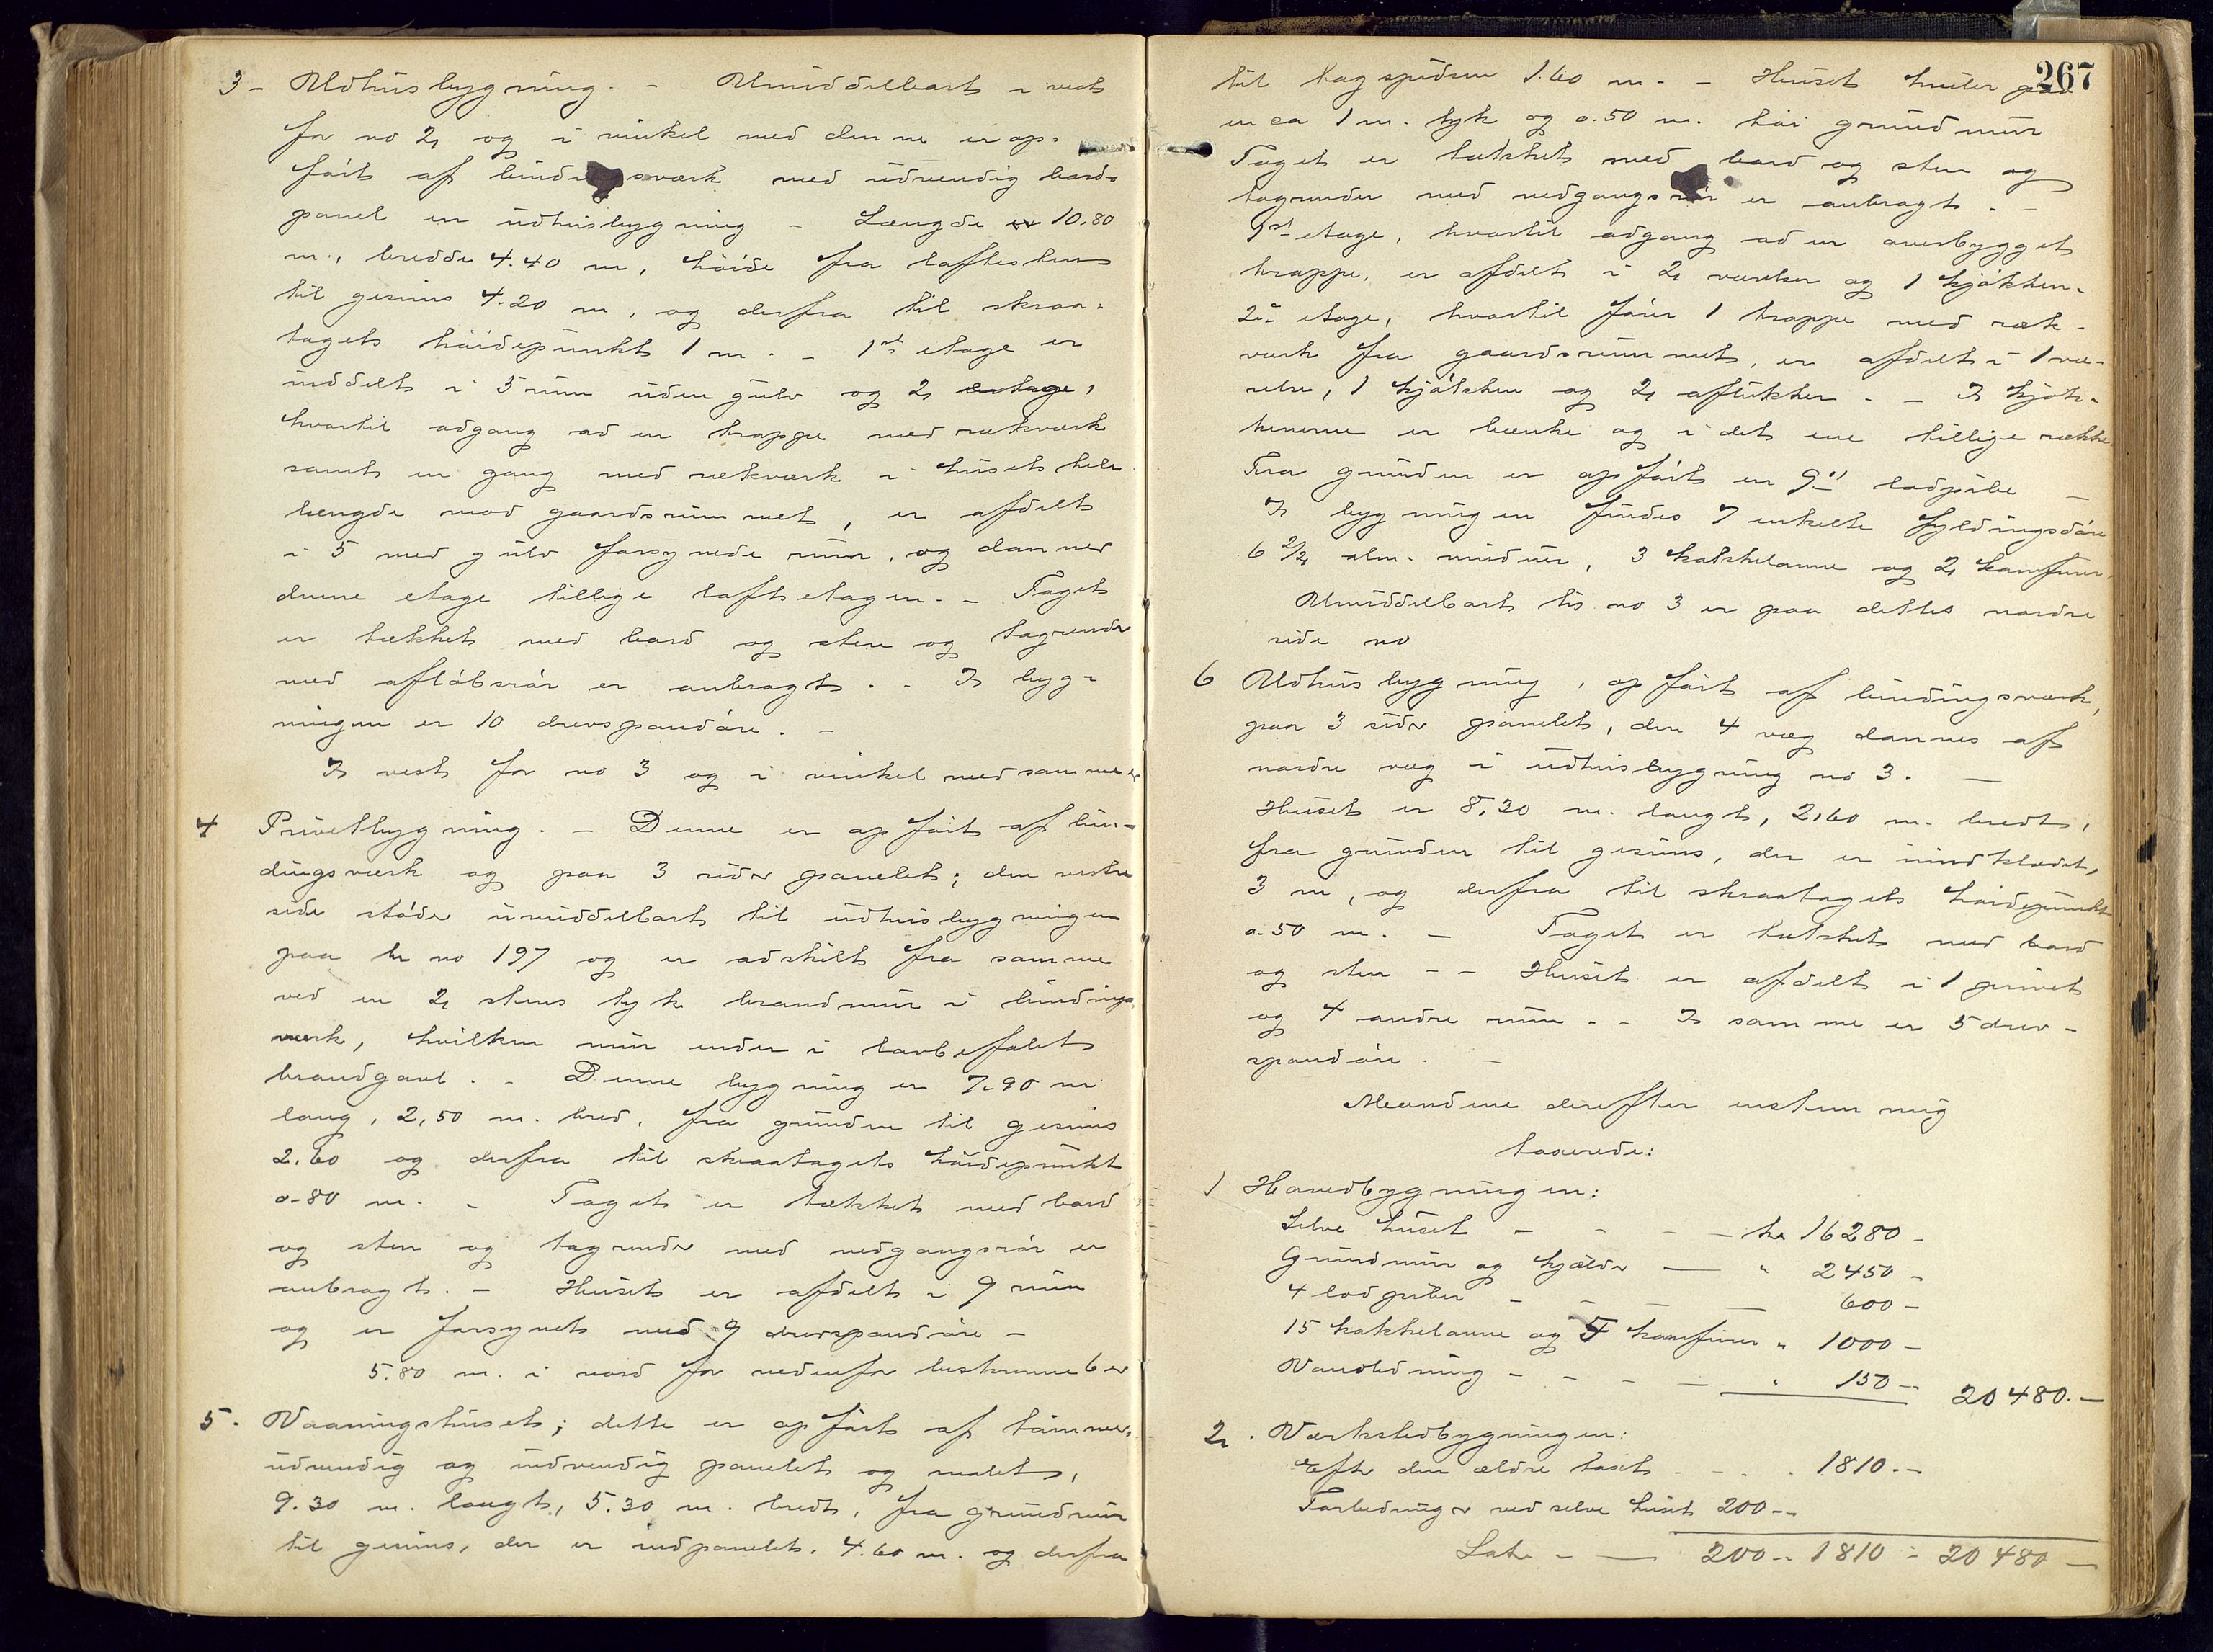 3 - Udhusbygning. - Umiddelbart i vest
for no 2 og i vinkel med denne er op-
ført af bindingsværk med udvendig bord-
panel en udhusbygning - Længde er 10.80
m., bredde 4.40 m, høide fra loftesten
til gesims 4.20 m, og derfra til skraa-
tagets høidepunkt 1 m. - 1ste etage er
inddelt i 5 rum uden gulv og 2 etage,
hvortil adgang ad en trappe med rækværk
samt en gang med rækværk i husets hele
længde mod gaardsrummet, er afdelt
i 5 med gulv forsynede rum, og danner
denne etage tillige loftsetagen. - Taget
er tækket med bord og sten og tagrender
med afløbsrør er anbragt. - I byg-
ningen er 10 drevspandøre. -
I vest for no 3 og i vinkel med samme er
4 Privetbygning. - Denne er opført af bin-
dingsværk og paa 3 sider panelet; den vestre
side støder umiddelbart til udhusbygningen
paa br no 197 og er adskilt fra samme
ved en 2 stens tyk brandmur i bindings
værk, hvilken mur ender i lovbefalet
brandgavl. - Denne bygning er 7.90 m
lang, 2,50 m. bred, fra grunden til gesims
2.60 og derfra til skraatagets høidepunkt
0.80 m. - Taget er tækket med bord
og sten og tagrender med nedgangsrør er
anbragt. - Huset er afdelt i 9 rum
og er forsynet med 9 drevspandøre -
5.80 m. i nord for nedenfor beskrevne 6 er
5. Vaaningshuset; dette er opført af tømmer,
udvendig og indvendig panelet og malet,
9.30 m. langt, 5.30 m. bredt, fra grundmur
til gesims, der er indpanelet, 4.60 m. og derfra
267
til tagspidsen 1.60 m. - Huset hviler paa
en ca 1 m. tyk og 0.50 m. høi grundmur
Taget er tækket med bord og sten og
tagrender med nedgangsrør er anbragt. -
1ste etage, hvortil adgang ad en overbygget
trappe, er afdelt i 2 værelser og 1 kjøkken.
2den etage, hvortil fører 1 trappe med ræk-
værk fra gaardsrummet, er afdelt i 1 væ-
relse, 1 kjøkken og 2 aflukker. - I kjøk-
kenerne er bænke og i det ene tillige række.
Fra grunden er opført en 9" lodpibe -
I bygningen findes 7 enkelte fyldingsdøre
6 2/2 alm. vinduer, 3 kakkelovne og 2 komfurer.
Umiddelbart til no 3 er paa dettes nordre
side no
6 Udhusbygning, opført af bindingsværk,
paa 3 sider panelet, den 4 væg dannes af
nordre væg i udhusbygning no 3. -
Huset er 8,30 m. langt, 2,60 m. bredt,
fra grunden til gesims, der er indklædet,
3 m, og derfra til skraatagets høidepunkt
0.50 m. - Taget er tækket med bord
og sten - - Huset er afdelt i 1 privet
og 4 andre rum. - I samme er 5 drev-
spandøre. -
Mændene derefter enstemmig
taxerede:
1 Hovedbygningen:
Selve huset - - - - kr 16280 -
Grundmur og kjælder - " 2450 -
4 lodpiber - - - - 600 -
15 kakkelovne og 5 komfurer " 1000 -
Vandledning - - - - " 150 - 20480. -
2. Værkstedbygningen:
Efter den ældre taxt - - . . 1810. -
Forbedringer ved selve huset 200 - -
Lats - - 200 - 1810 - 20480 -